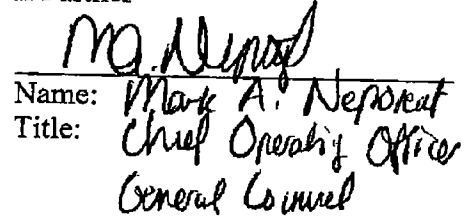 Name: Mark A. Neporent
Title: Chief Operating Officer
General Counsel